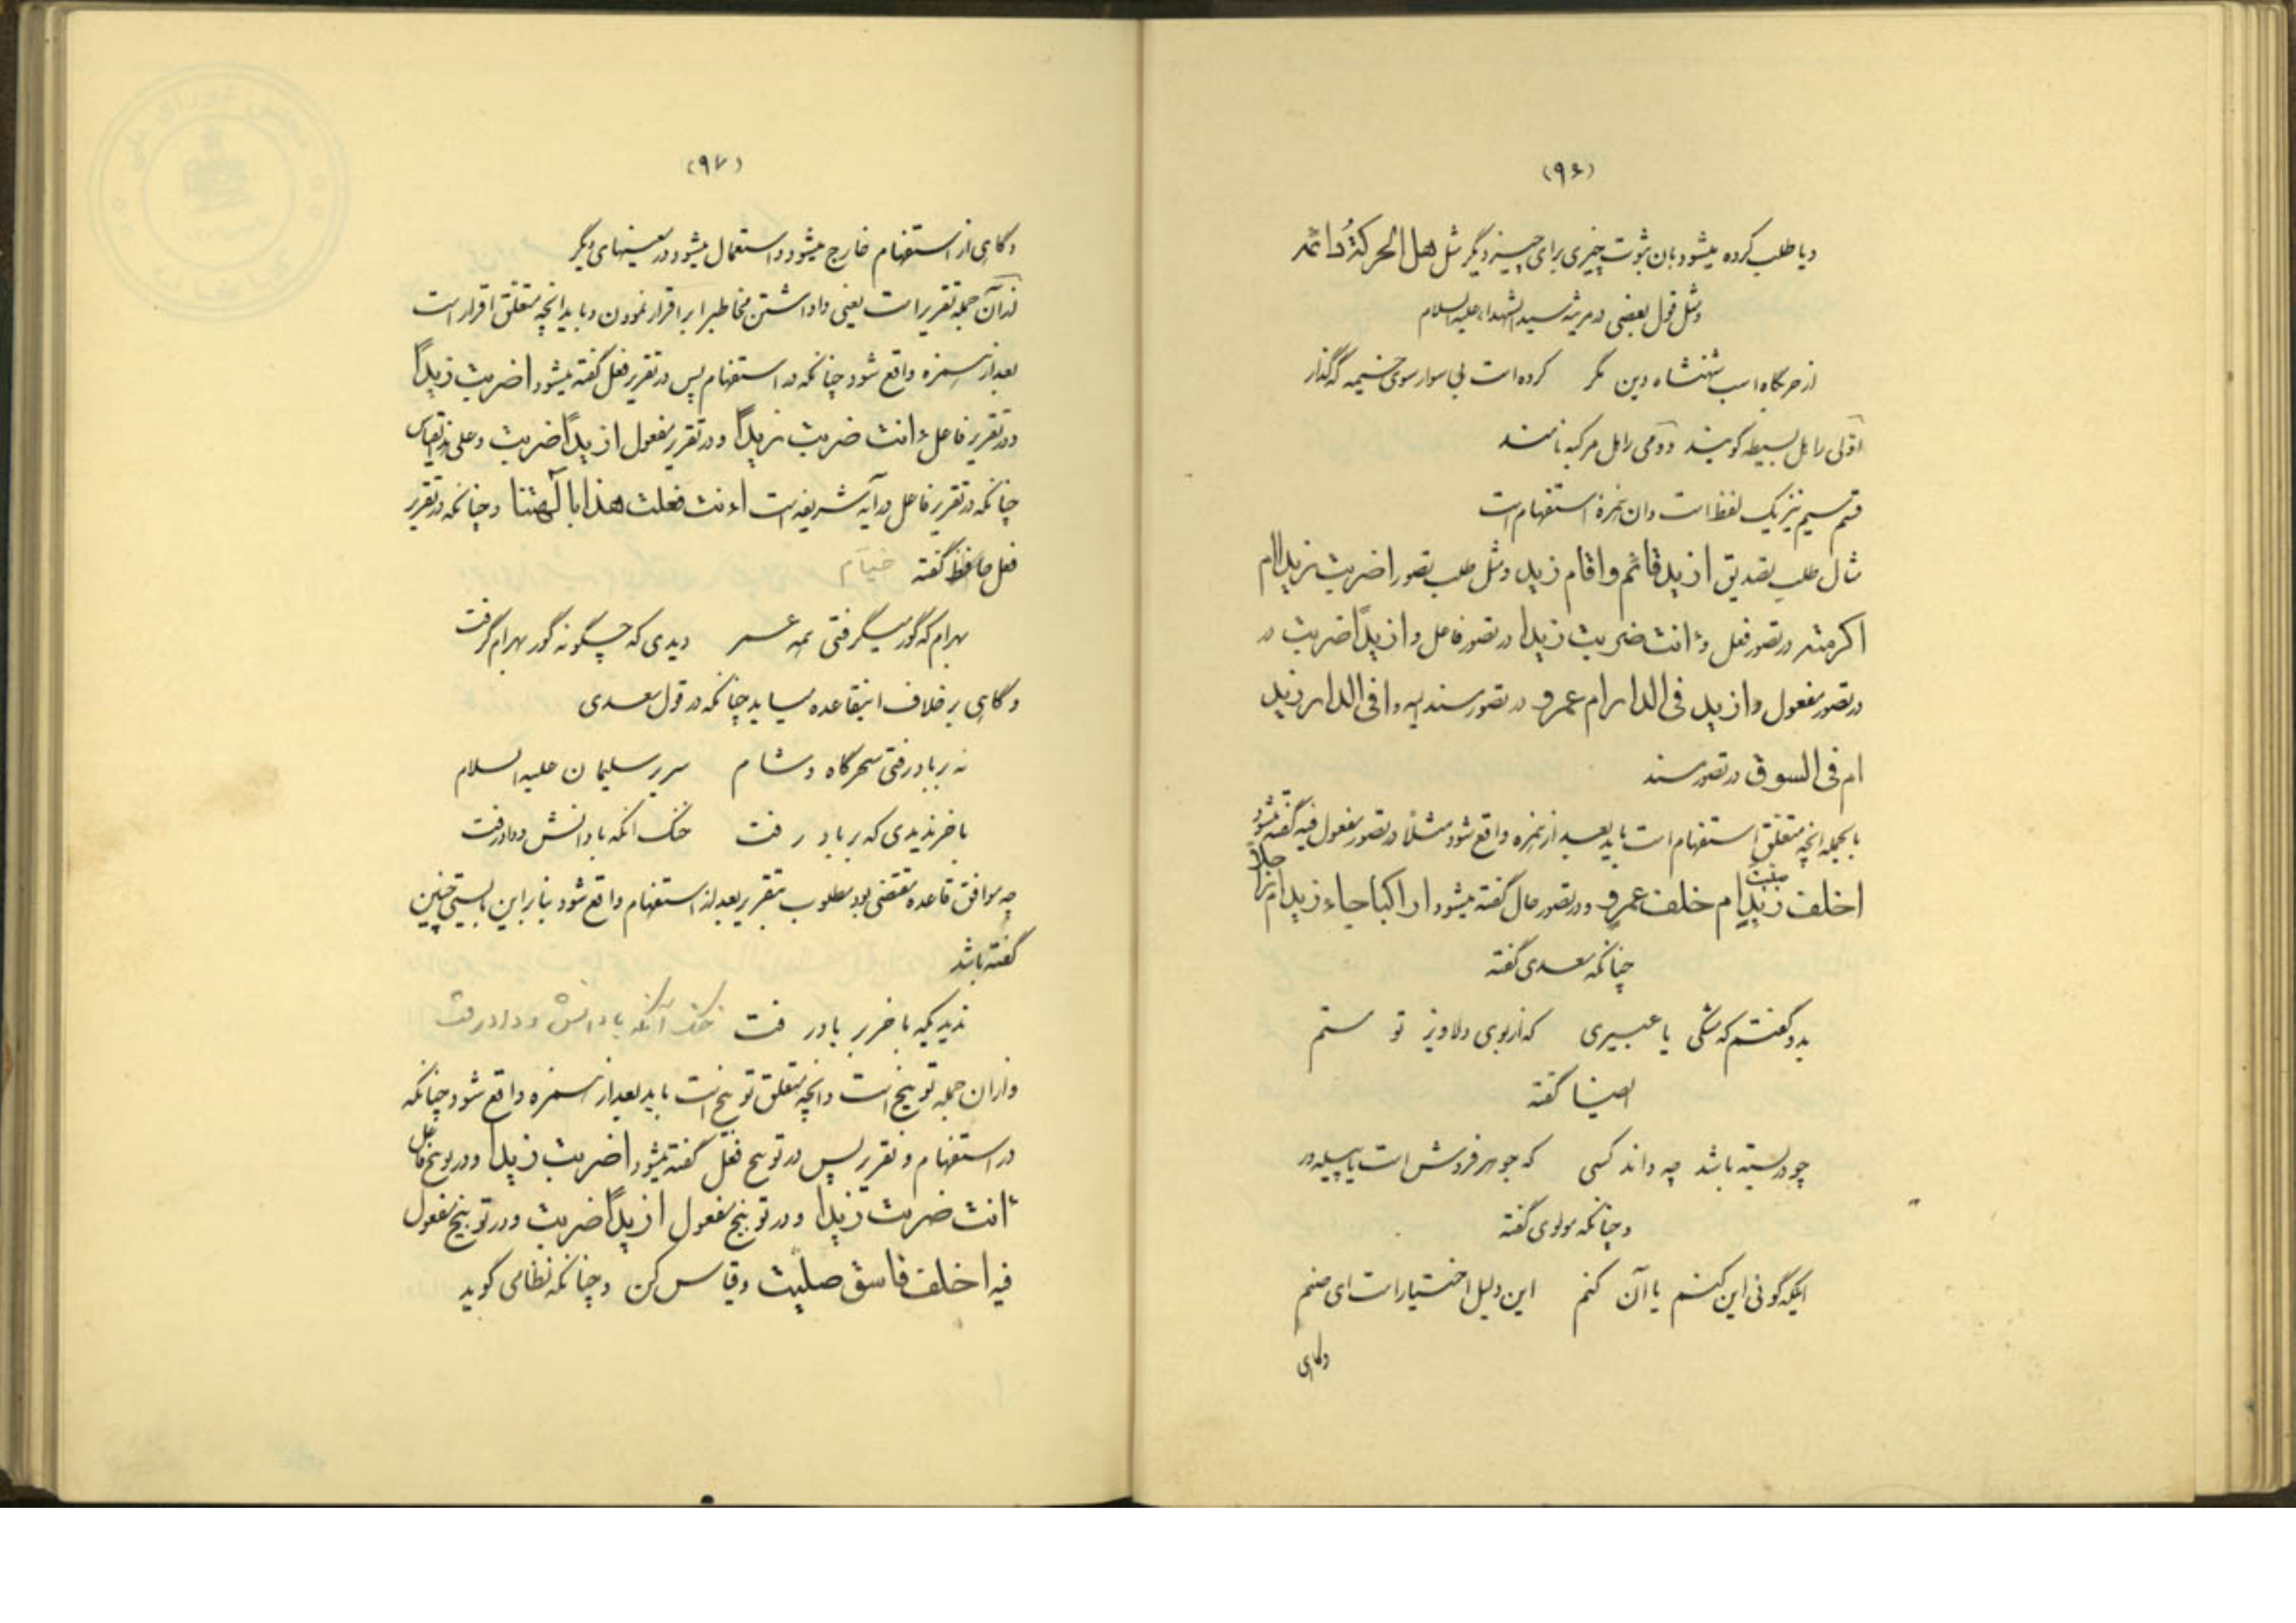 (۹۶)
و یا طلب کرده میشود بان ثبوت چیزی برای چیز دیگر مثل هل الحرکةُ دائمه
و مثل قول بعضی در مرثیه سید الشهداء علیه السلام
از حربگاه اسب شهنشاه دین مگر کرده است بی سوار سوی خیمه گه گذار
اوّلی را هل بسیطه گویند و دومی را هل مرکبه نامند
قسم سیم نیز یک لفظ است و ان همزهٔ استفهام است
مثال طلب تصدیق ازید قائم و اقام زید و مثل طلب تصور اضربت زیدا ام
اکرمته در تصور فعل و ءانت ضربت زیدا در تصور فاعل و ازیداً ضربت در
در تصور مفعول و ازید فی الدار ام عمرو در تصور مسند الیه و افی الدار زید
ام فی السوق در تصور مسند
بالجمله انچه متعلق استفهام است باید بعد از همزه واقع شود مثلاً در تصور مفعول فیه گفته میشود
اخلف زیدٍ ام خلف عمرٍو و در تصور حال گفته میشود اراکبا جاء زید ام راجلا
چنانکه سعدی گفته
بدو گفتم که مشکی یا عبیری که از بوی دلاویز تو مستم
ایضا گفته
چو در بسته باشد چه داند کسی که جوهر فروش است یا پیله ور
و چنانکه مولوی گفته
اینکه گوئی این کنم یا آن کنم این دلیل اختیار است ای صنم
و گاهی
(۹۷)
و گاهی از استفهام خارج میشود و استعمال میشود در معنیهای دیگر
از آن جمله تقریر است یعنی واداشتن مخاطب را بر اقرار نمودن و باید انچه متعلق اقرار است
بعد از همزه واقع شود چنانکه در استفهام پس در تقریر فعل گفته میشود اضربت زیداً
و در تقریر فاعل ءانت ضربت زیداً و در تقریر مفعول ازیداً ضربت و علی هذ القیاس
چنانکه در تقریر فاعل در آیه شریفه است اءنت فعلت هذا بآلهتنا و چنانکه در تقریر
فعل حافظ گفته خیام
بهرام که گور میگرفتی همه عمر دیدی که چگونه گور بهرام گرفت
و گاهی بر خلاف اینقاعده میاید چنانکه در قول سعدی
نه بر باد رفتی سحرگاه و شام سریر سلیمان علیه السلام
باخر ندیدی که بر باد رفت خنک انکه با دانش و داد رفت
چه موافق قاعده مقتضی بود مطلوب بتقریر بعد از استفهام واقع شود بنابراین بایستی چنین
گفته باشد
ندیدیکه باخر بر باد رفت خنک آنکه با دانش و داد رفت
و ازان جمله توبیخ است و انچه متعلق توبیخ است باید بعد از همزه واقع شود چنانکه
در استفهام و تقریر پس در توبیخ فعل گفته میشود اضربت زیدا و در توبیخ فاعل
ءانت ضربت زیدا و در توبیخ مفعول ازیداً ضربت و در توبیخ مفعول
فیه اخلف فاسق صلیت و قیاس کن و چنانکه نظامی گوید